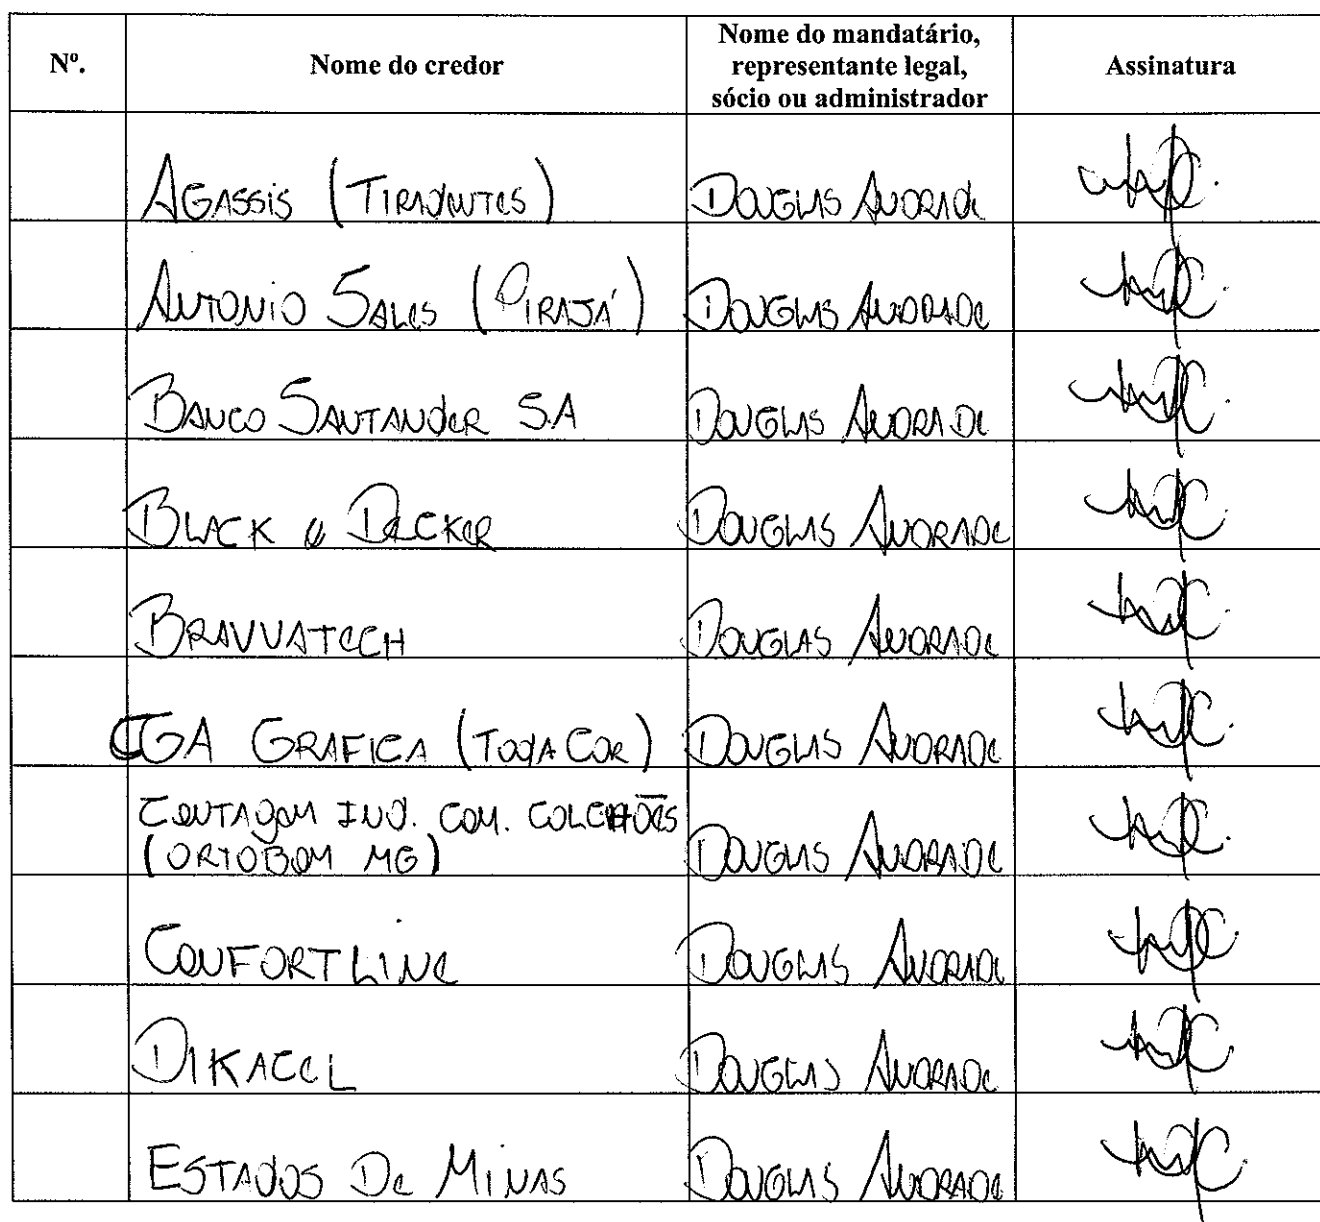 Nº.
Nome do credor
Nome do mandatário,
representante legal,
sócio ou administrador
Assinatura
AGASSIS (TIRADENTES) DOUGLAS ANDRADE
ANTONIO SALES (PIRAJÁ) DOUGLAS ANDRADE
BANCO SANTANDER S.A DOUGLAS ANDRADE
BLACK e DECKER DOUGLAS ANDRADE
BRAVVATECH DOUGLAS ANDRADE
CGA GRAFICA (TODA COR) DOUGLAS ANDRADE
CONTAGEM IND. COM. COLCHÕES
(ORTOBOM MG) DOUGLAS ANDRADE
CONFORTLINE DOUGLAS ANDRADE
DIKACEL DOUGLAS ANDRADE
ESTADOS DE MINAS DOUGLAS ANDRADE